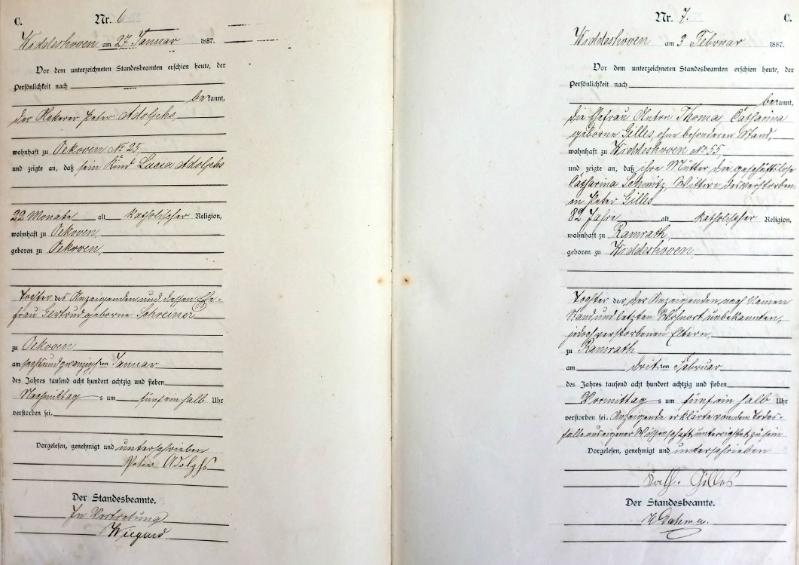 C.
Nr. 6
Widdeshoven am 27 Januar 1887.
Vor dem unterzeichneten Standesbeamten erschien heute, der
Persönlichkeit nach
bekannt,
der Peter Adolphs
wohnhaft zu Oekoven No 25
und zeigte an, daß sein Kind Lucia Adolphs
22 Monate alt katholischer Religion,
wohnhaft zu Oekoven
geboren zu Oekoven,
Tochter des Anzeigenden und dessen Ehe-
frau Gertrud geborene Schreiner
zu Oekoven
am sechsundzwanzigsten Januar
des Jahres tausend acht hundert achtzig und sieben
Nachmittags um fünf ein halb Uhr
verstorben sei.
Vorgelesen, genehmigt und unterschrieben
Peter Adolphs
Der Standesbeamte.
In Vertretung
Wiegand
Nr. 7.
C.
Widdeshoven am 3 Februar 1887.
Vor dem unterzeichneten Standesbeamten erschien heute, der
Persönlichkeit nach
bekannt,
die Ehefrau Anton Thoma, Catharina
geborene Gilles, ohne besonderen Stand,
wohnhaft zu Widdeshoven No 55
und zeigte an, daß ihre Mutter die geschäftslose
Catharina Schmitz, Wittwe des verstorbe-
nen Peter Gilles
82 Jahre alt katholischer Religion,
wohnhaft zu Ramrath
geboren zu Widdeshoven
Tochter der der Anzeigenden nach Namen
Stand und letzten Wohnort unbekannten,
jedoch verstorbenen Eltern
zu Ramrath
am dritten Februar
des Jahres tausend acht hundert achtzig und sieben
Vormittags um fünf ein halb Uhr
verstorben sei. Anzeigende erklärte von dem Todes-
falle aus eigener Wissenschaft unterrichtet zu sein
Vorgelesen, genehmigt und unterschrieben
Cath. Gilles
Der Standesbeamte.